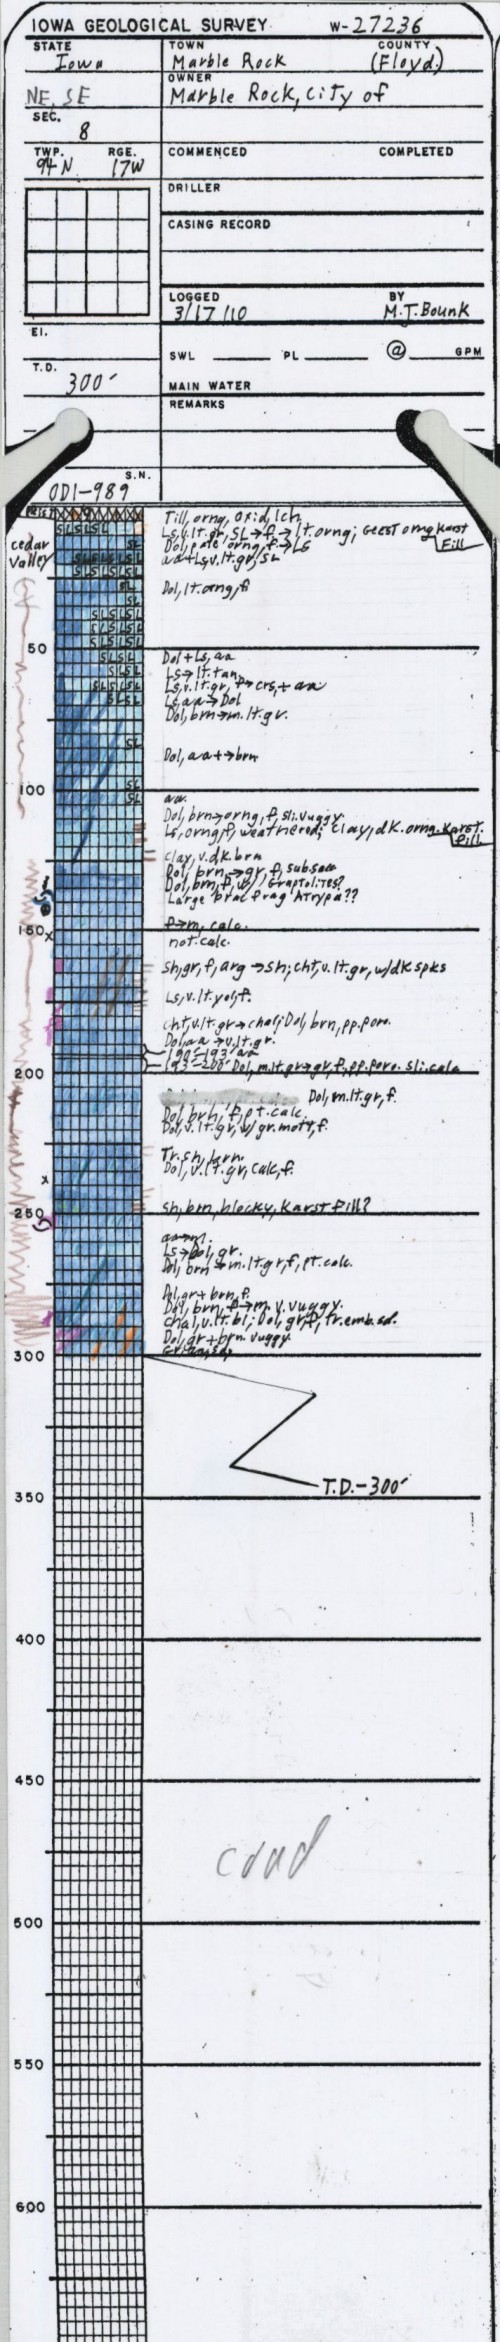 IOWA GEOLOGICAL SURVEY W-27236
STATE TOWN COUNTY
Iowa Marble Rock (Floyd)
OWNER
NE, SE Marble Rock, City of
SEC.
8
TWP. RGE. COMMENCED COMPLETED
94N 17W
DRILLER
CASING RECORD
LOGGED BY
3/17/10 M.J. Bounk
El.
SWL PL @ GPM
T.D.
300' MAIN WATER
REMARKS
S.N.
ODI-989
Till, orng, oxid, lch
Ls, v.lt.gr, SL→f→lt.orng; Geest orng karst
Fill
Cedar Valley
Dol, pale orng, f→LS
aa+Ls, v.lt.gr, SL
Dol, lt.orng, f
50
Dol+Ls, aa
Ls→lt.tan
Ls, v.lt.gr, f→crs, + aa
Ls, aa→Dol
Dol, brn→m.lt.gr.
Dol, aa+→brn
100
aa
Dol, brn→orng, f, sli.vuggy
Ls, orng, f, weathered; clay, dk.orng. Karst
fill
clay, v.dk.brn
Dol, brn→gr, f, subsacc
Dol, brn, f, w/ Graptolites?
Large brac frag Atrypa??
f→m, calc.
150
not calc.
sh, gr, f, arg→sh; cht, v.lt.gr, w/dk spks
Ls, v.lt.yel, f.
cht, v.lt.gr→chal; Dol, brn, pp.poro.
Dol, aa→v.lt.gr.
190-193 aa
193-200 Dol, m.lt.gr→gr, f, pp.poro. sli.calc
200
Dol, m.lt.gr, f
Dol, brn, f, pt.calc.
Dol, v.lt.gr, w/gr.mott, f.
Tr.sh, brn.
Dol, v.lt.gr, calc, f.
sh, brn, blocky, Karst fill?
250
aa→m.
Ls→Dol, gr.
Dol, brn→m.lt.gr, f, pt.calc.
Dol, gr+brn, f.
Dol, brn, f→m, v.vuggy.
chal, v.lt.bl; Dol, gr, f, tr.emb.sd.
Dol, gr+brn. vuggy
300
T.D.-300'
350
400
450
500
550
600